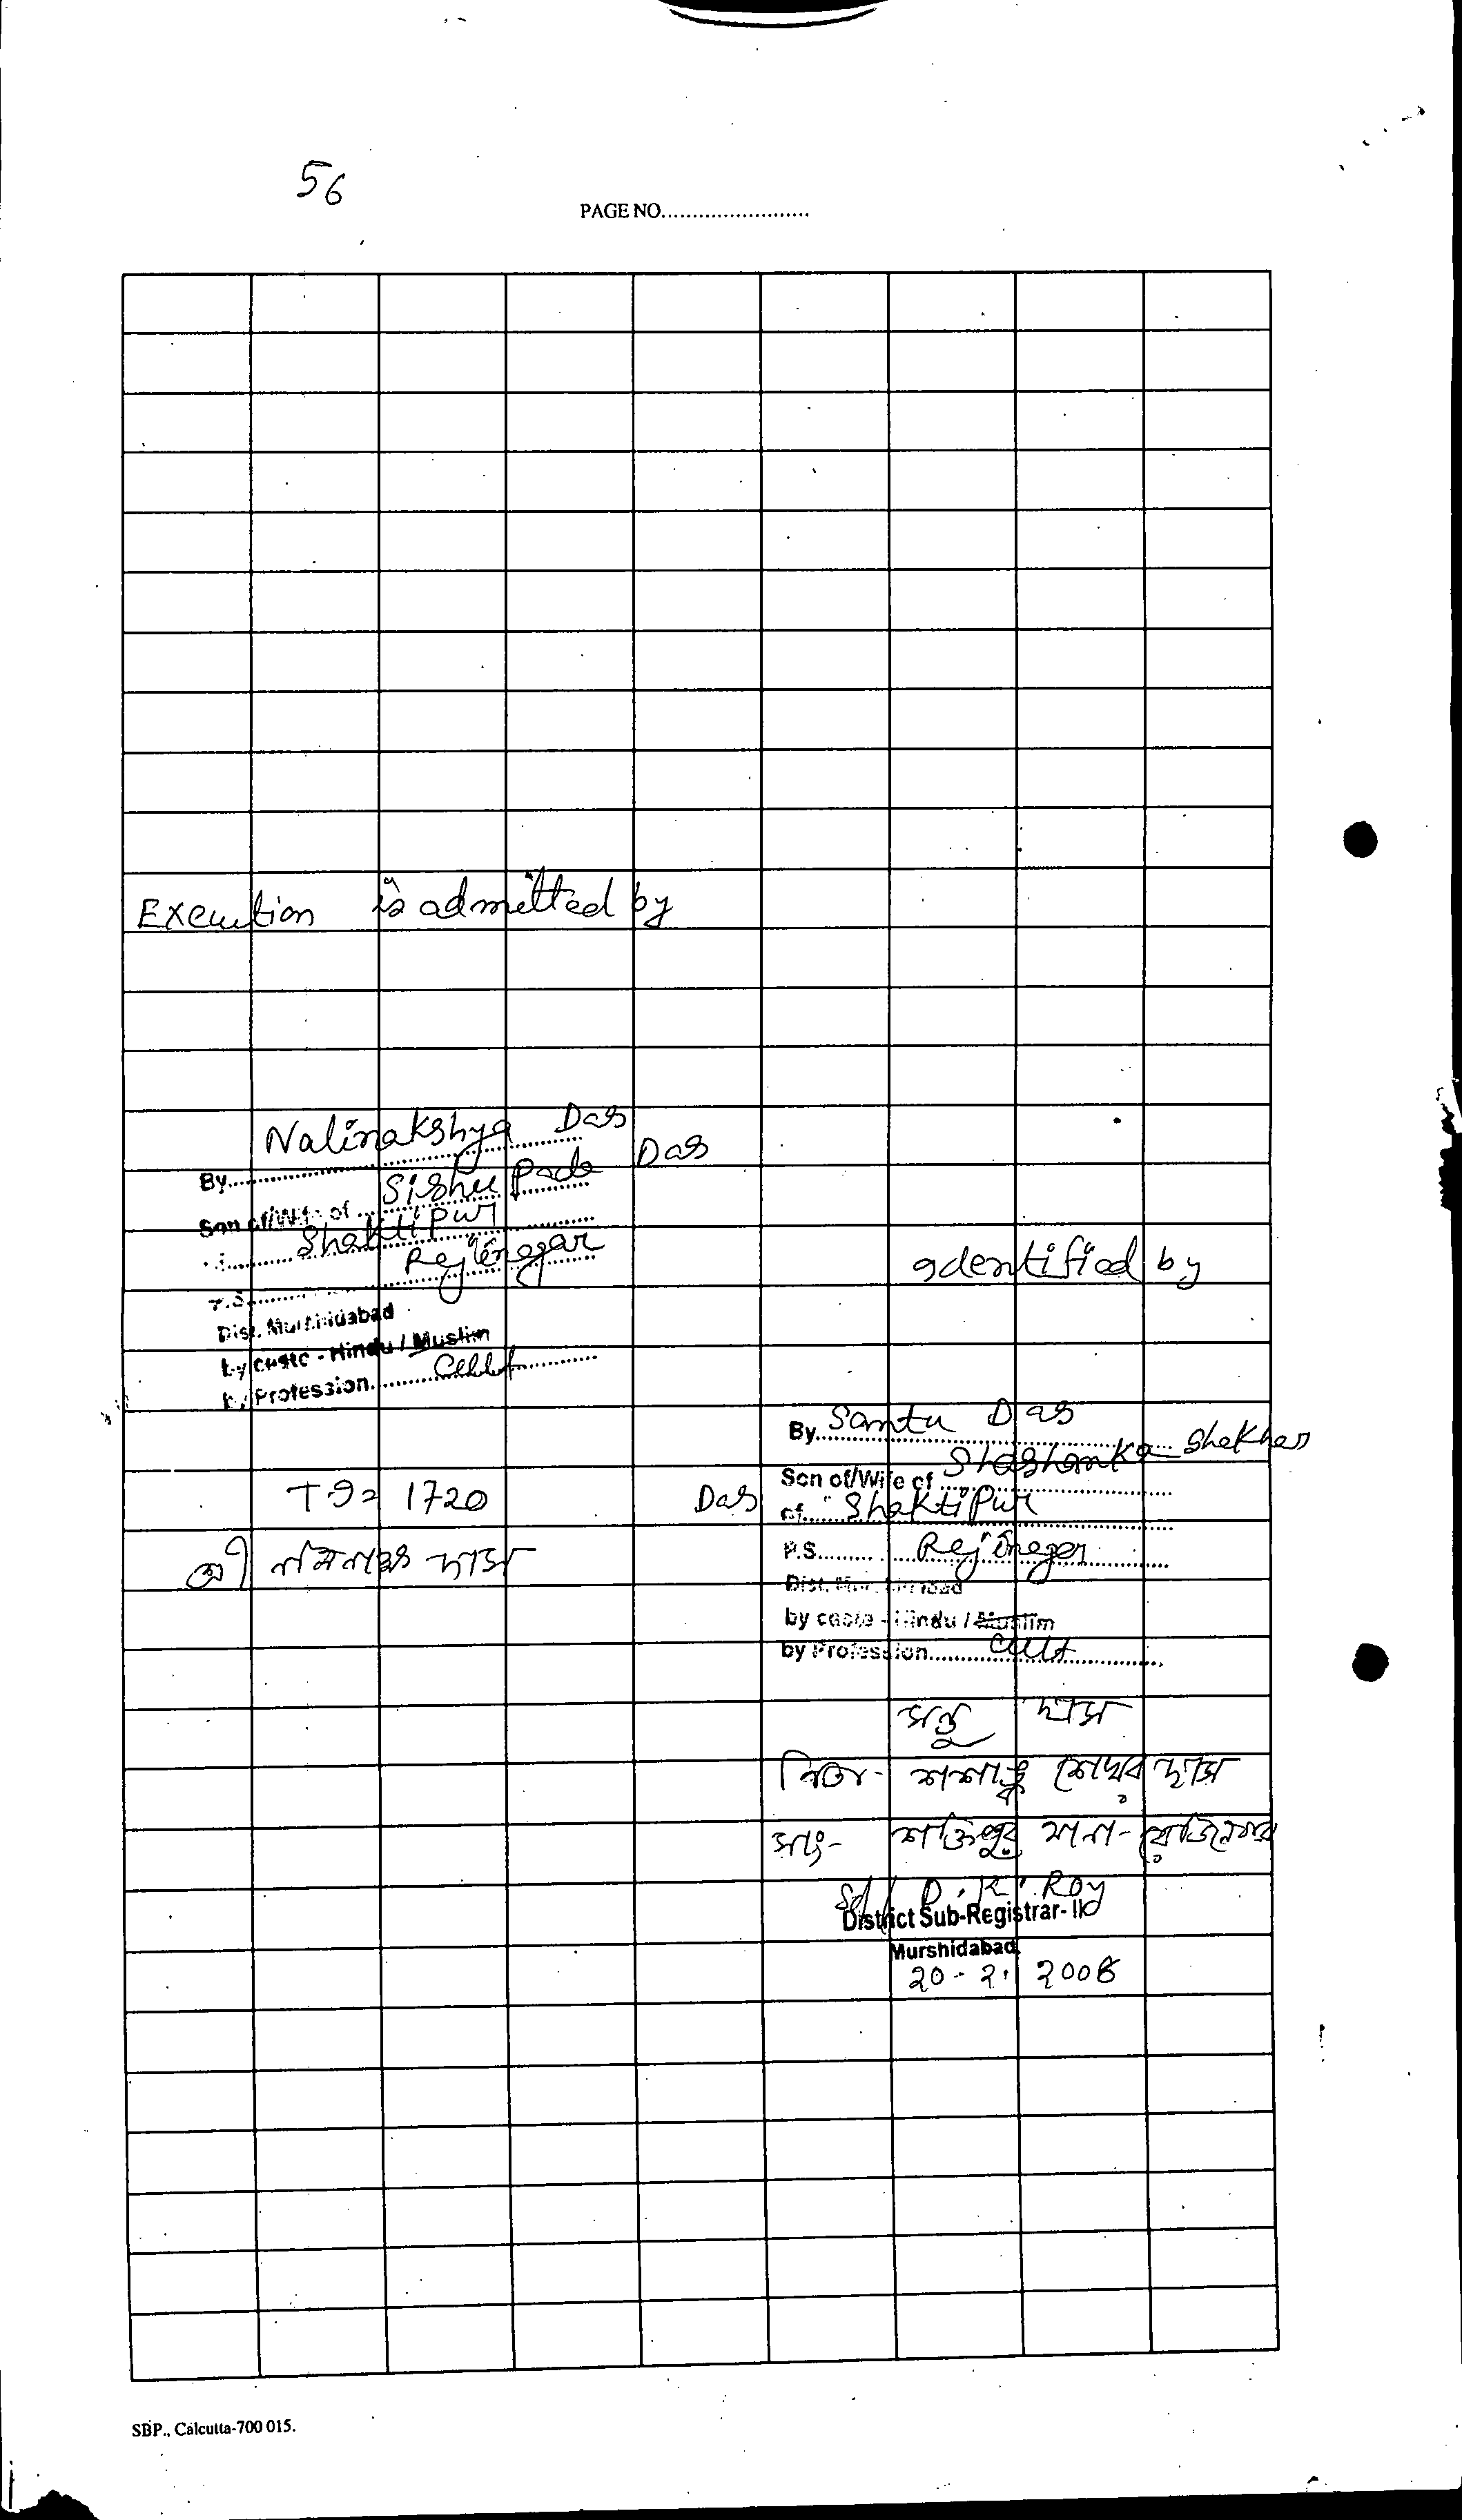 56
PAGE NO.........................
Execution is admitted by
By Nalinakshya Das
Son of/Wife of Sishu Pada Das
Shaktipur
P.S. Rejinagar
Dist. Murshidabad
by caste - Hindu / Muslim
by Profession Cult
Identified by
By Santu Das
Son of/Wife of Shashanka Shekhar
Das
of Shaktipur
P.S. Rejinagar
Dist. Murshidabad
by caste - Hindu / Muslim
by Profession Cult
1720
দাস
সন্তু দাস
পিতা- শশাঙ্ক শেখর দাস
সাং- শক্তিপুর থানা- রেজিনগর
Sd/ D. K. Roy
District Sub-Registrar-II
Murshidabad
20-2. 2008
SBP., Calcutta-700 015.